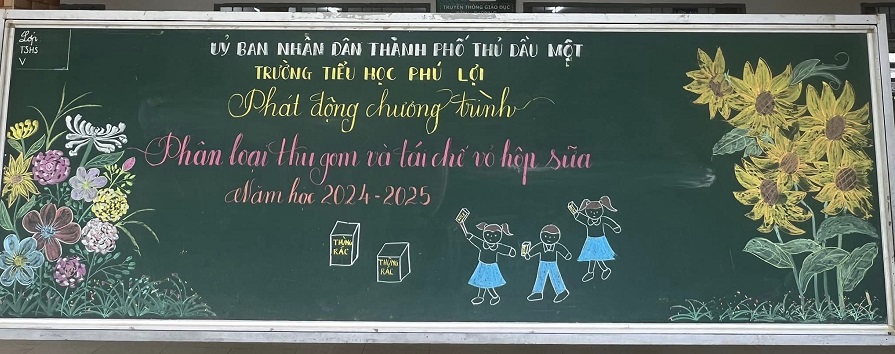 TRUYỀN THÔNG GIÁO DỤC
Lớp
TSHS
V
UỶ BAN NHÂN DÂN THÀNH PHỐ THỦ DẦU MỘT
TRƯỜNG TIỂU HỌC PHÚ LỢI
Phát động chương trình
Phân loại thu gom và tái chế vỏ hộp sữa
Năm học 2024-2025
THÙNG
RÁC
THÙNG
RÁC